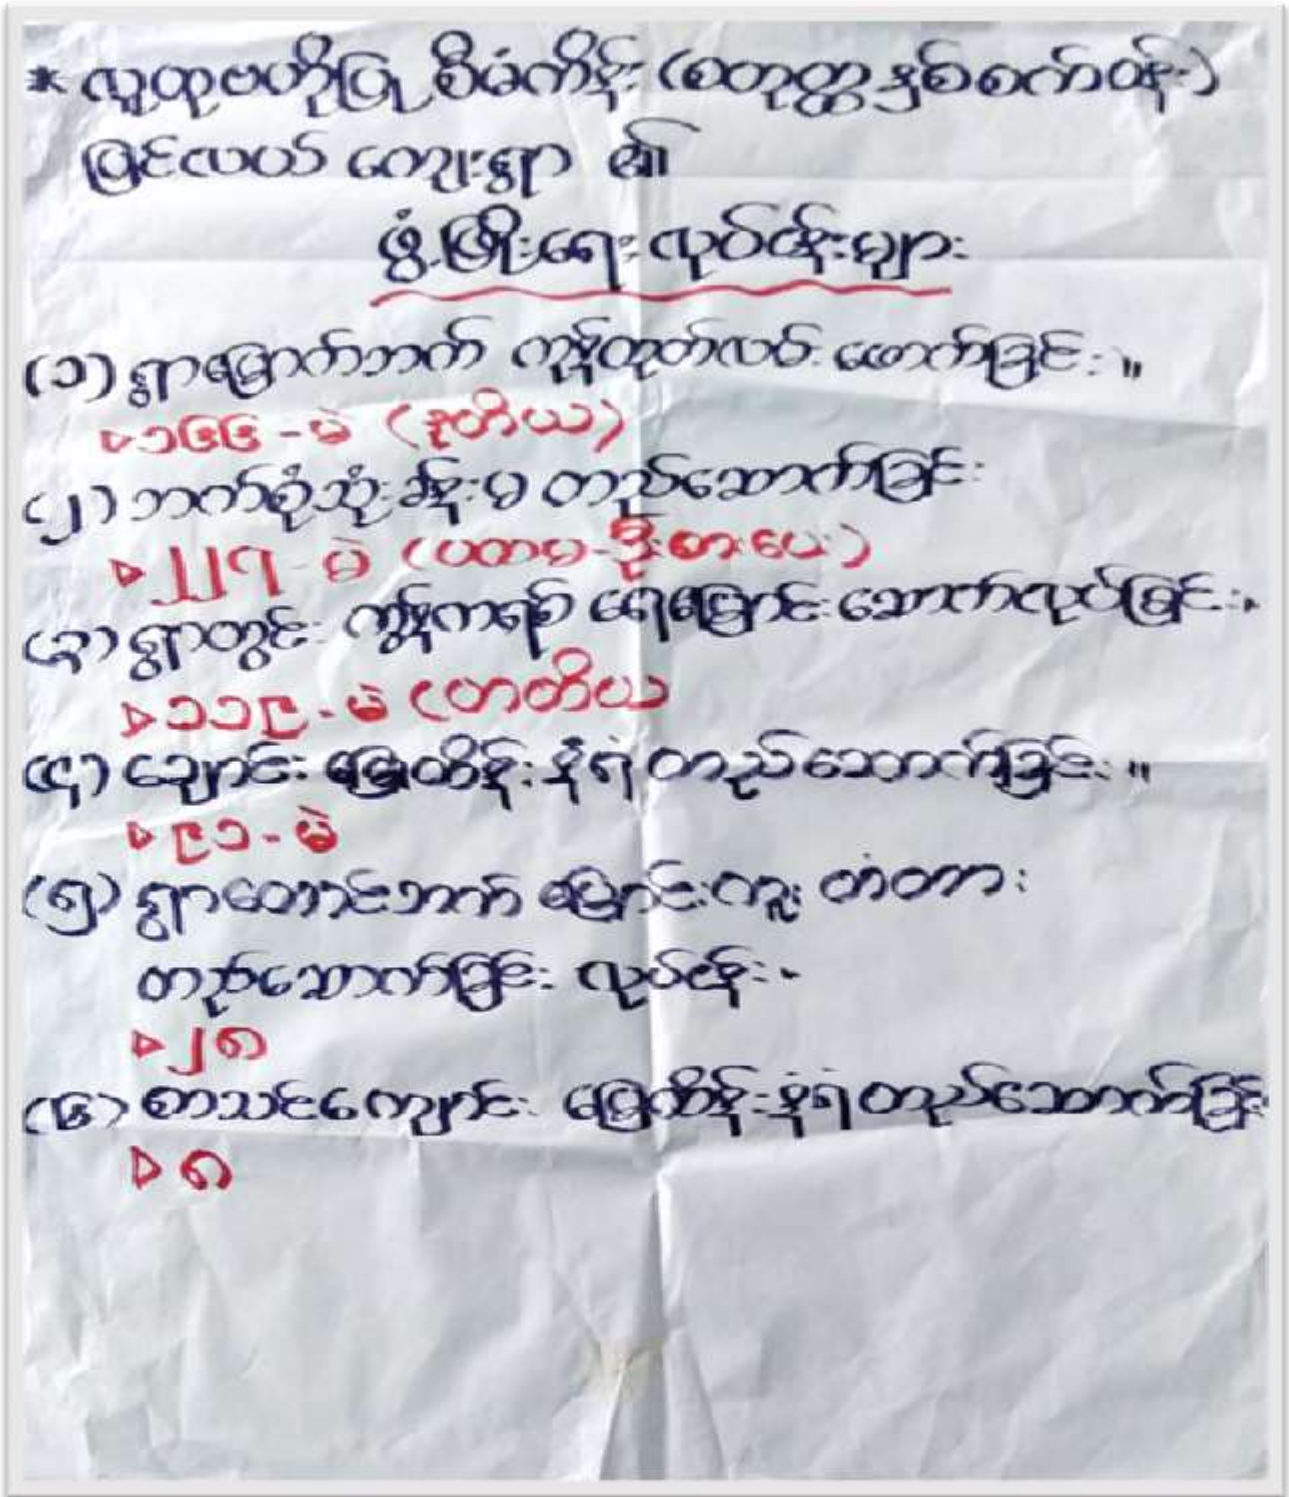 * လူထုဗဟိုပြု စီမံကိန်း (စတုတ္ထနှစ်စက်ဝန်း)
မြင်လယ် ကျေးရွာ ၏
ဖွံ့ဖြိုးရေး လုပ်ငန်းများ
(၁) ရွာမြောက်ဘက် ကုန်ထုတ်လမ်း ဖောက်ခြင်း။
▷ ၁၆၆ - မဲ (ဒုတိယ)
(၂) ဘက်စုံသုံးခန်းမ တည်ဆောက်ခြင်း
▷ ၂၂၇ - မဲ (ပထမ-ဦးစားပေး)
(၃) ရွာတွင်း ကွန်ကရစ် ရေမြောင်း ဆောက်လုပ်ခြင်း။
▷ ၁၁၉ - မဲ (တတိယ
(၄) ချောင်း မြေထိန်း နံရံ တည်ဆောက်ခြင်း။
▷ ၉၁ - မဲ
(၅) ရွာတောင်ဘက် မြောင်းကူး တံတား
တည်ဆောက်ခြင်း လုပ်ငန်း။
▷ ၂၈
(၆) စာသင်ကျောင်း မြေထိန်းနံရံ တည်ဆောက်ခြင်း
▷ ၈